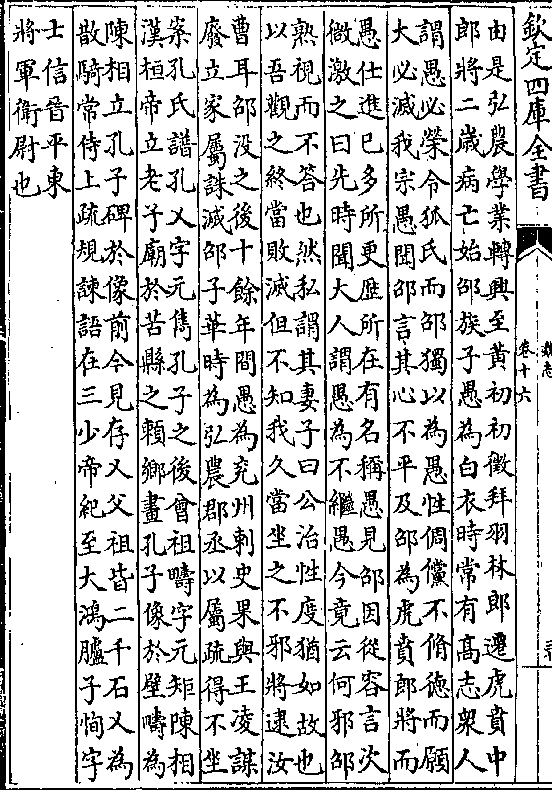 欽定四庫全書
魏志
卷十六
由是弘農學業轉興至黃初初徵拜羽林郎遷虎賁中
郎將二歲病亡始邵族子愚為白衣時常有高志衆人
謂愚必榮令狐氏而邵獨以為愚性倜儻不脩德而願
大必滅我宗愚聞邵言其心不平及邵為虎賁郎將而
愚仕進已多所更歴所在有名稱愚見邵因從容言次
微激之曰先時聞大人謂愚為不繼愚今竟云何邪邵
熟視而不答也然私謂其妻子曰公治性度猶如故也
以吾觀之終當敗滅但不知我久當坐之不邪將逮汝
曹耳邵沒之後十餘年間愚為兖州刺史果與王凌謀
廢立家屬誅滅邵子華時為弘農郡丞以屬疏得不坐
案孔氏譜孔乂字元儁孔子之後曾祖疇字元矩陳相
漢桓帝立老子廟於苦縣之賴鄉畫孔子像於壁疇為
陳相立孔子碑於像前今見存乂父祖皆二千石乂為
散騎常侍上疏規諫語在三少帝紀至大鴻臚子恂字
士信晉平東
將軍衛尉也